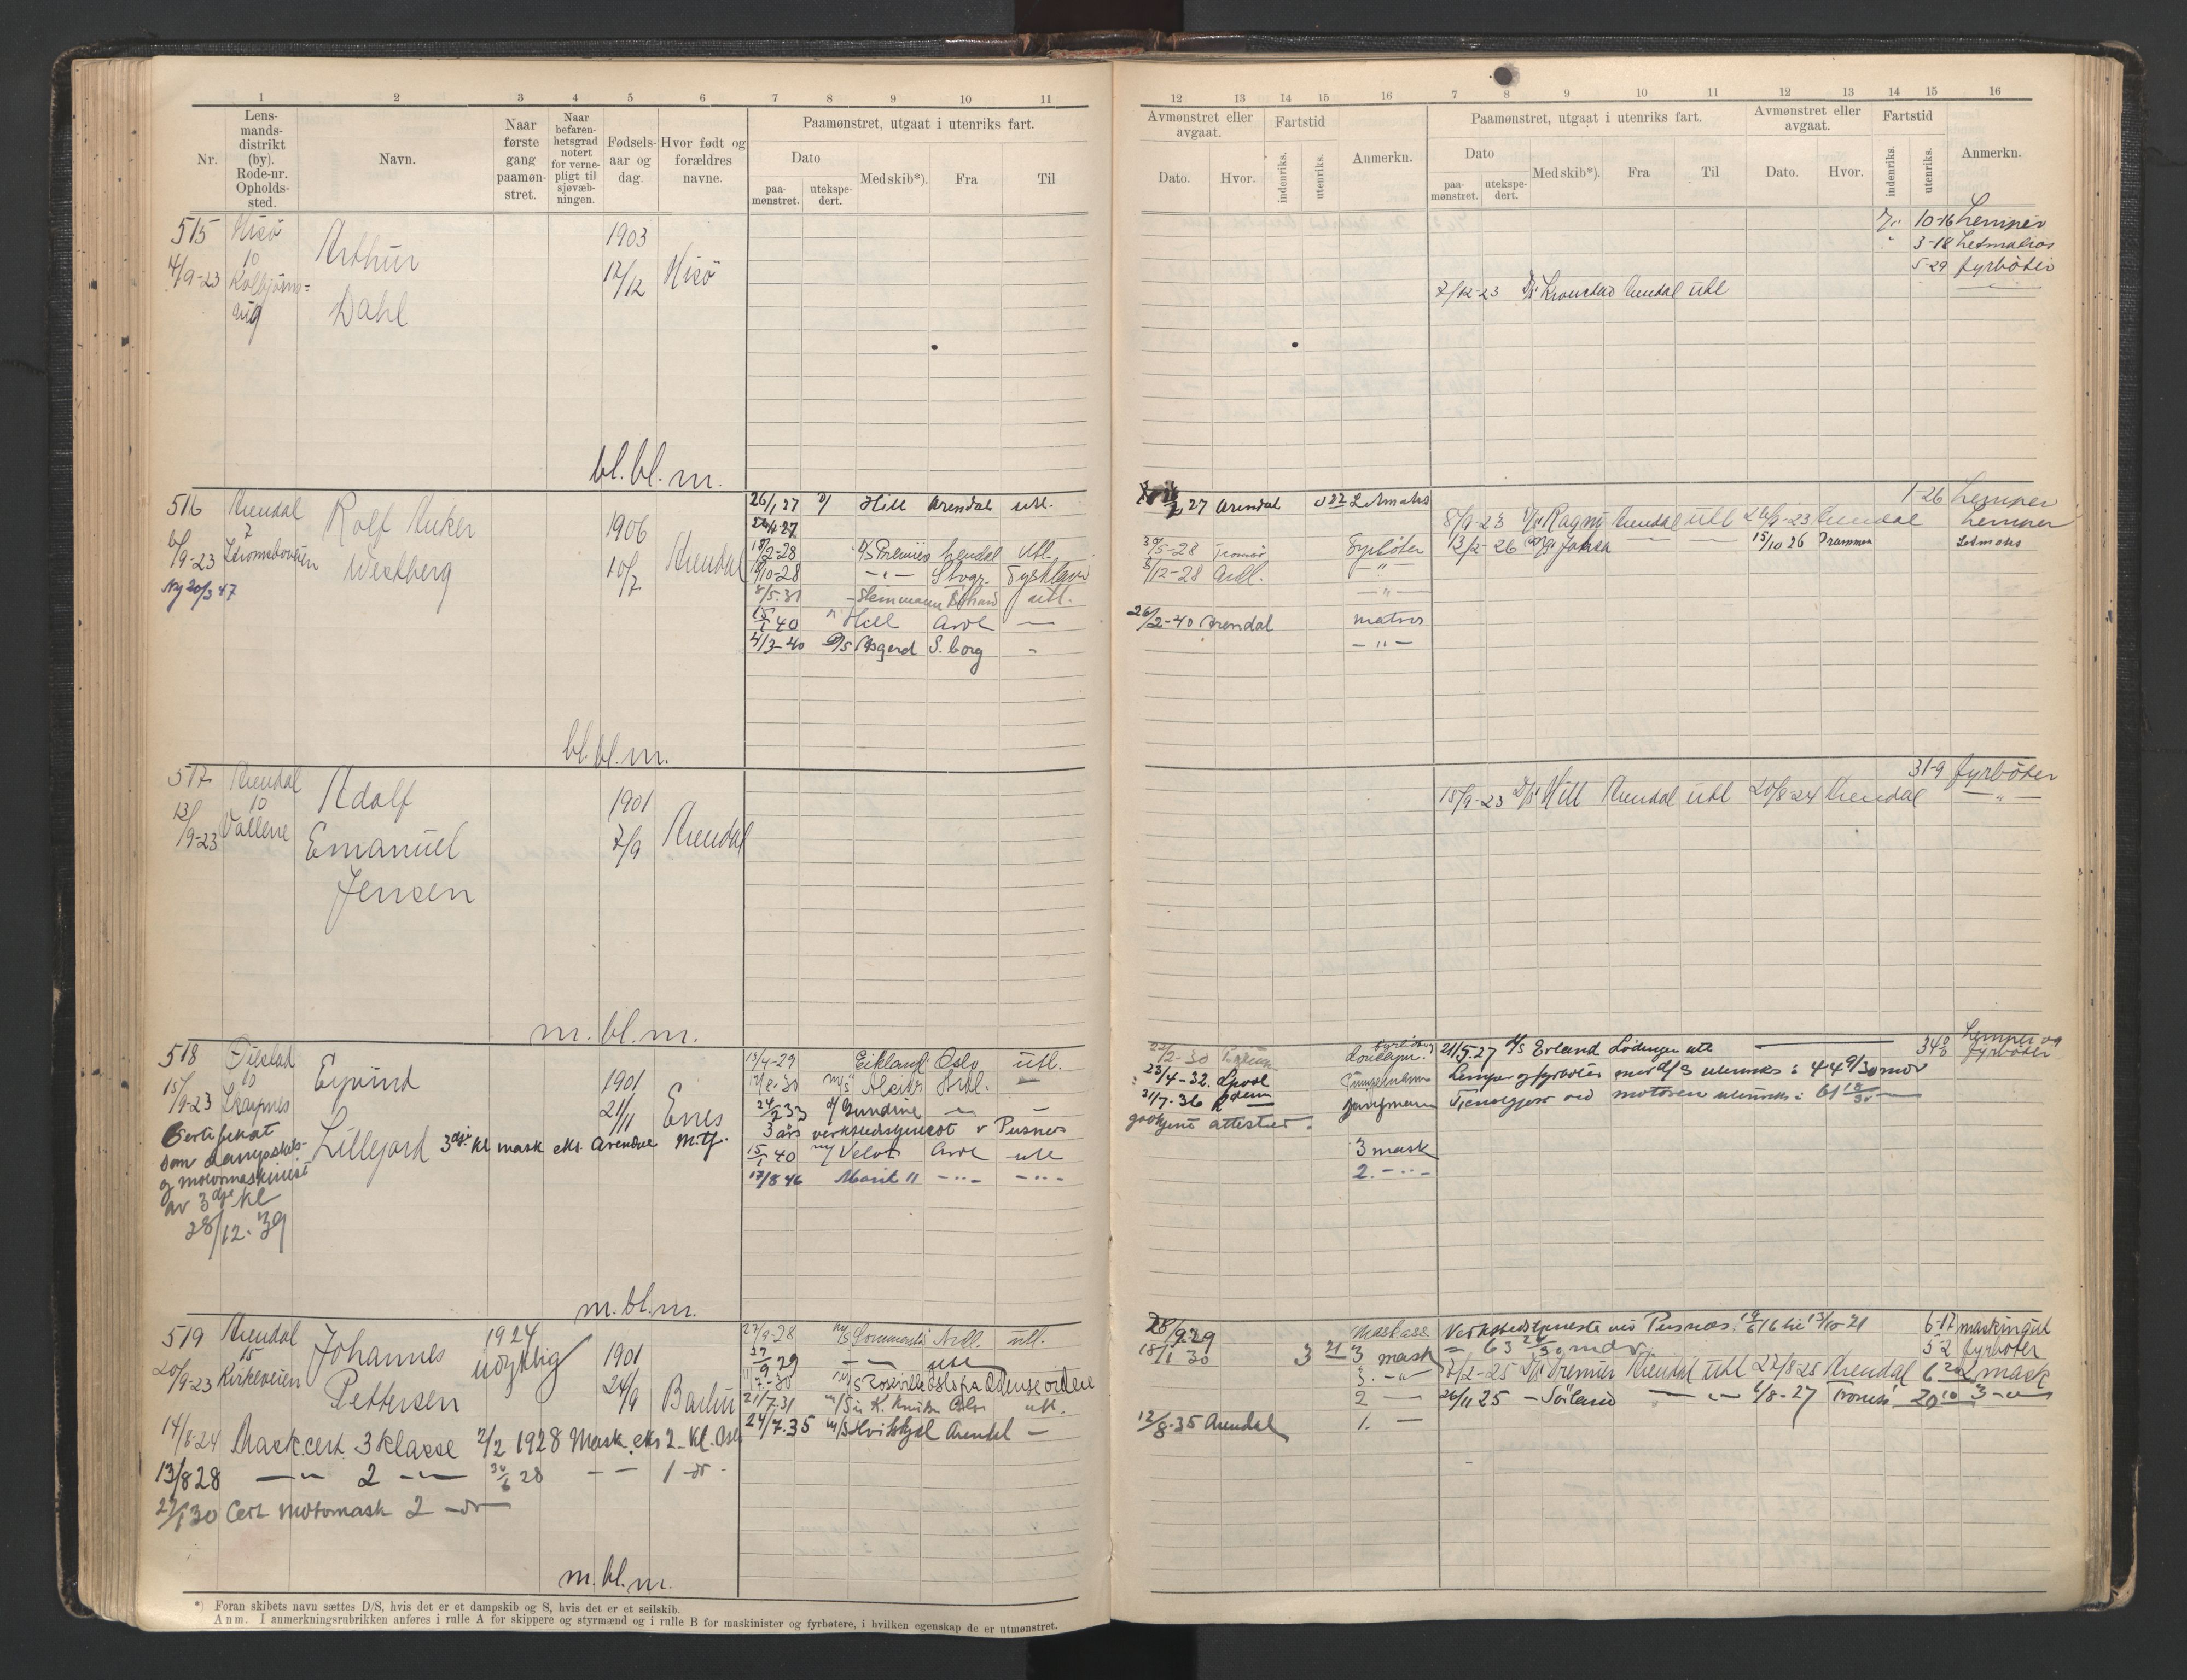 1 2 3 4 5 6 7 8 9 10 11
Nr.
Lens-
mands-
distrikt
(by).
Rode-nr.
Opholds-
sted.
Navn.
Naar
første
gang
paamøn-
stret.
Naar
befaren-
hetsgrad
notert
for verne-
pligt til
sjøvæb-
ningen.
Fødsels-
aar og
dag.
Hvor født og
forældres
navne.
Paamønstret, utgaat i utenriks fart.
Dato
paa-
mønstret.
utekspe-
dert.
Med skib*).
Fra
Til
515 Hisö
10
4/9-23 Kolbjörns=
vig
Arthur
Dahl
1903
12/12
Hisö
bl. bl. m.
516 Arendal
2
6/9-23 Strømsboveien
Ny 20/3 47
Rolf Anker
Westberg
1906
10/7
Arendal
26/1 27 D/ Hill Arendal utl.
18/2-28 D/S Premier Arendal Utl.
/10-28 -"- Tyskland
8/5.31 utl.
15/1 40 Hill Ardl —
4/3-40 D/S Asgerd S.borg -
bl. bl. m.
517 Arendal
10
13/9-23 Vallene
Adolf
Emanuel
Jensen
1901
7/9
Arendal
m. bl. m.
518 Öiestad
10
15/9-23
Sertifikat
som dampskibs-
og motormaskinist
av 3dje kl
28/12-39
Eyvind
Lillejord 3dje kl mask eks. Arendal
1901
21/11
Enes
13/4-29 Eikland Oslo utl.
Ardl. —
24/2 33 D/ Gundine — —
3 års verkstedstjeneste v Pusnes
15/1 40 m/ Velox Ardl utl
17/8 46 Marit II -"- -"-
m. bl. m.
519 Arendal
15
20/9-23 Kirkeveien
Johannes
Pettersen
1924
udyktig
1901
24/9
Barbu
27/9-28 Ardl. utl.
27/9 29 — utl
24/7.35 M/S Hvitskjel Arendal —
14/8-24 Mask.cert. 3 klasse 2/2 1928 Mask. eks 2. kl.
13/8 28 — " — 2 — " — 30/6 28 — — 1 -do-
27/1 30 Cert motormask 2 -do-
m. bl. m.
*) Foran skibets navn sættes D/S, hvis det er et dampskib og S, hvis det er et seilskib.
Anm. I anmerkningsrubrikken anføres i rulle A for skippere og styrmænd og i rulle B for maskinister og fyrbøtere, i hvilken egenskap de er utmønstret.
12 13 14 15 16 7 8 9 10 11 12 13 14 15 16
Avmønstret eller
avgaat.
Dato.
Hvor.
Fartstid
indenriks.
utenriks.
Anmerkn.
Paamønstret, utgaat i utenriks fart.
Dato
paa-
mønstret.
utekspe-
dert.
Med skib*).
Fra
Til
Avmønstret eller
avgaat.
Dato.
Hvor.
Fartstid
indenriks.
utenriks.
Anmerkn.
10-16 Lemper
3-18 Letmatros
5-29 fyrböter
7/12-23 D/S Kronstad Arendal utl
27 Arendal Letmatros
1-26 Lemper
8/9-23 D/S Ragni Arendal utl 26/9-23 Arendal Lemper
30/5-28 Tromsø Fyrbøter 13/2-26 — — 15/10 26 Drammen Letmatros
8/12-28 Ardl. -"-
-"-
26/2-40 Arendal matros
-"-
31-9 fyrböter
15/9-23 D/S Hill Arendal utl 20/8-24 Arendal -"-
22/12-30 21/5.27 D/S Erland Lödingen utl — Lemper og
fyrböter
23/4-32. Lemper og fyrbøter med D/S utenriks: 44 9/30 mdr
21/7.36 Tjenestgjort ved motoren utenriks: 61 18/30 —
godkjente attester.
3 mask
2. -"-
28/9.29 Maskass. Verkstedstjeneste ved Pusnes 19/6 16 til 13/10-21 6-17 maskingut
18/1 30 3 21 3 mask — 63 24/30 mdr. 5-2 fyrböter
3. -"- 2/2-25 D/S Premier Arendal utl 22/8-25 Arendal 6 20 2 mask
2 — 26/11 25 — Söiland — " — 6/8-27 Tromsö 20 10 3 -"-
12/8.35 Arendal 1. —